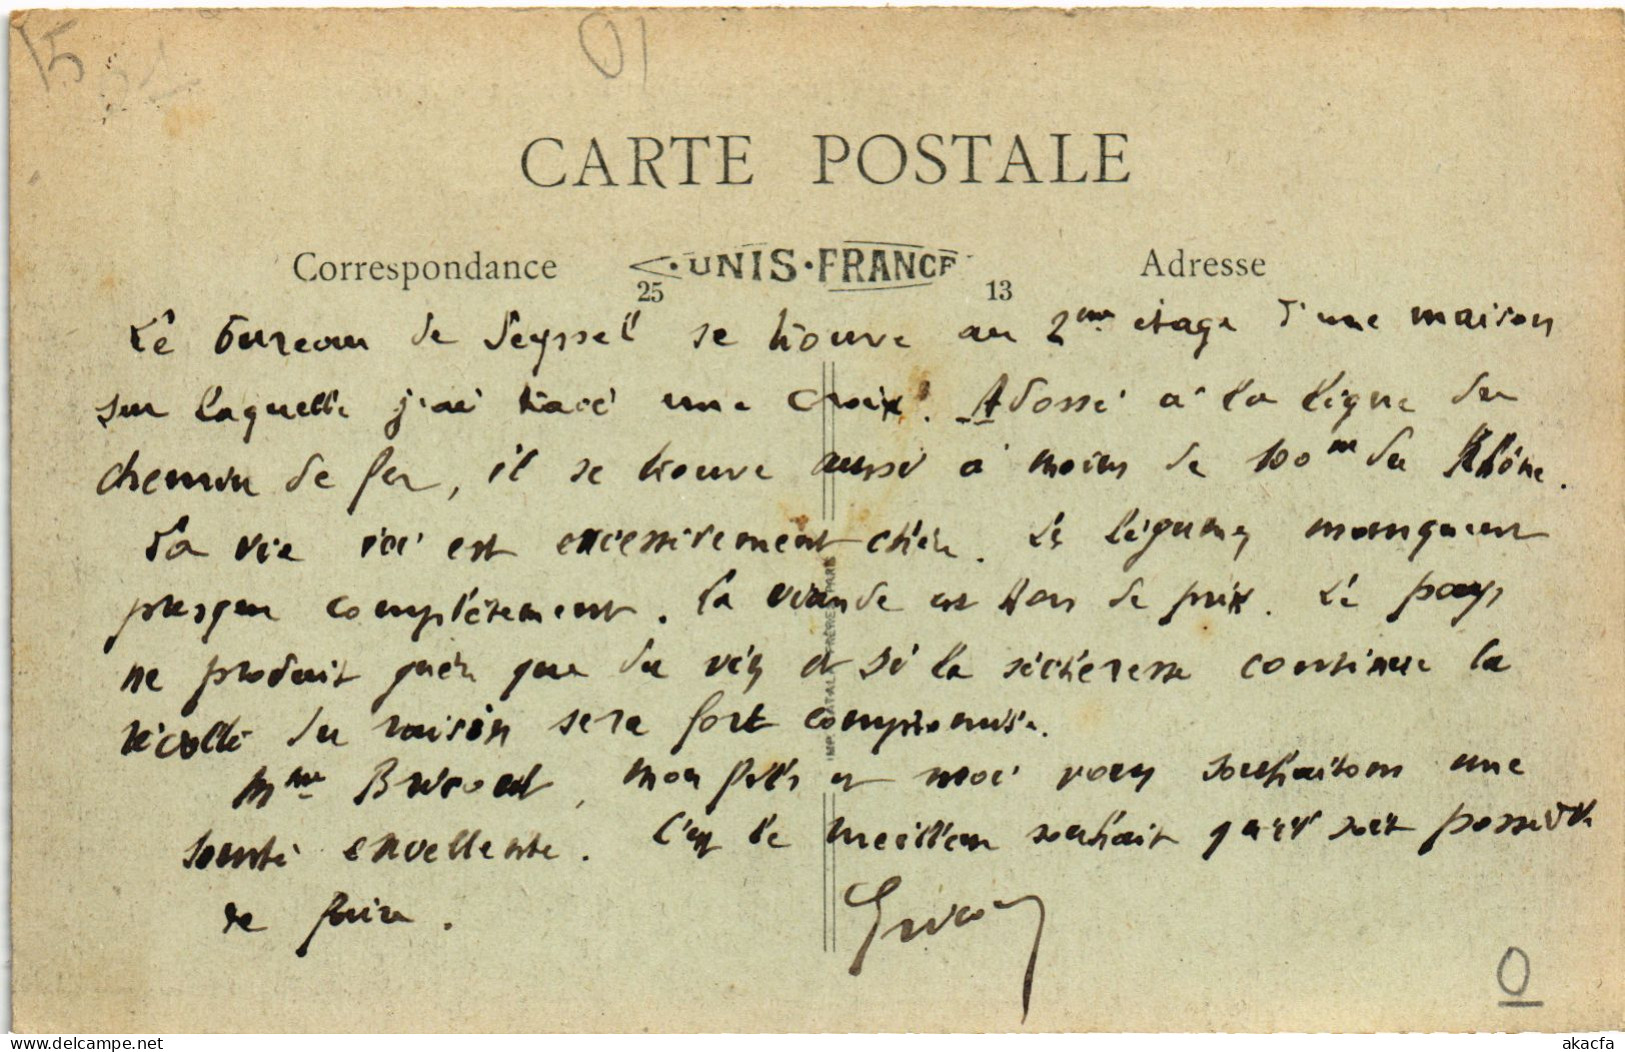 15
01
CARTE POSTALE
Correspondance
·UNIS·FRANCE
Adresse
25
13
Le bureau de Seyssel se trouve au 2ème étage d'une maison
sur laquelle j'ai tracé une croix. Adossé à la ligne du
chemin de fer, il se trouve aussi à moins de 100 m du Rhône.
La vie ici est excessivement chère. Les légumes manquent
presque complètement. La viande est hors de prix. Le pays
ne produit guère que du vin et si la sécheresse continue la
récolte du raisin sera fort compromise.
Mme mon fils et moi vous souhaitons une
santé excellente. C'est le meilleur souhait qu'il soit possible
de faire.
0
akacfa